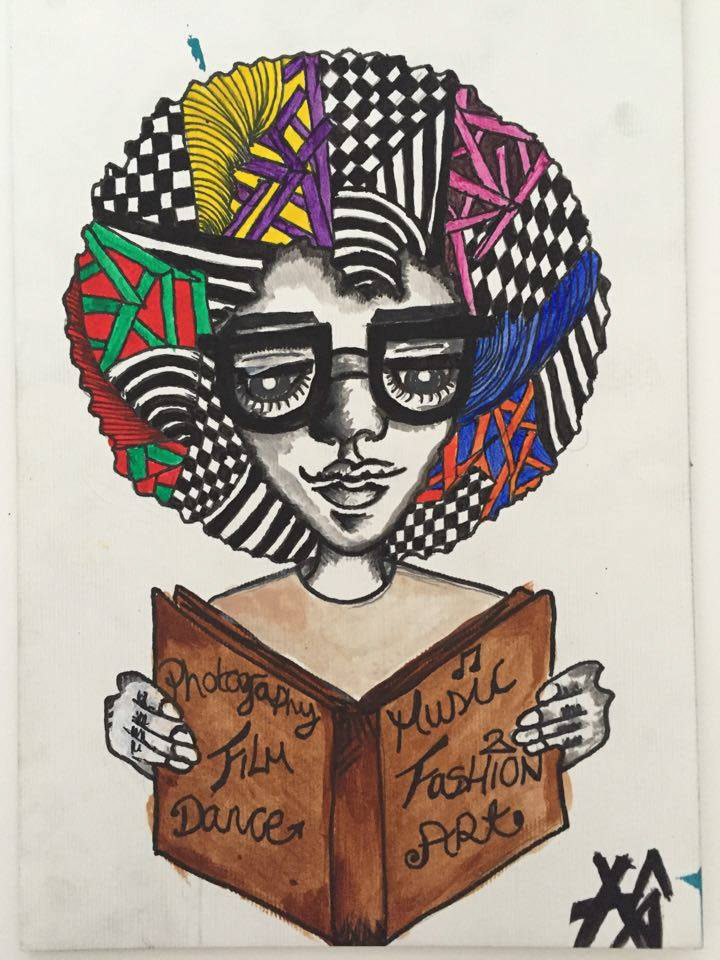 Photography
FiLM
Dance
Music
FASHION
ARt